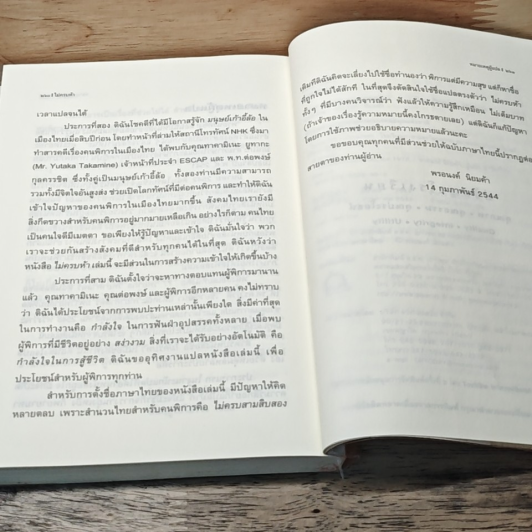 ๒๒๐ ไม่ครบห้า
เวลาแปลจนได้
ประการที่สอง ดิฉันโชคดีที่ได้มีโอกาสรู้จัก มนุษย์เก้าอี้ล้อ ใน
เมืองไทยเมื่อสิบปีก่อน โดยทำหน้าที่ล่ามให้สถานีโทรทัศน์ NHK ซึ่งมา
ทำสารคดีเรื่องคนพิการในเมืองไทย ได้พบกับคุณทาคามิเนะ ยูทากะ
(Mr. Yutaka Takamine) เจ้าหน้าที่ประจำ ESCAP และ พ.ท.ต่อพงษ์
กุลครรชิต ซึ่งทั้งคู่เป็นมนุษย์เก้าอี้ล้อ ทั้งสองท่านมีความสามารถ
รวมทั้งมีจิตใจอันสูงส่ง ช่วยเปิดโลกทัศน์ที่มีต่อคนพิการ และทำให้ดิฉัน
เข้าใจปัญหาของคนพิการในเมืองไทยมากขึ้น สังคมไทยเรายังมี
สิ่งกีดขวางสำหรับคนพิการอยู่มากมายเหลือเกิน อย่างไรก็ตาม คนไทย
เป็นคนใจดีมีเมตตา ขอเพียงให้รู้ปัญหาและเข้าใจ ดิฉันมั่นใจว่า พวก
เราจะช่วยกันสร้างสังคมที่ดีสำหรับทุกคนได้ในที่สุด ดิฉันหวังว่า
หนังสือ ไม่ครบห้า เล่มนี้ จะมีส่วนในการสร้างความเข้าใจให้เกิดขึ้นบ้าง
ประการที่สาม ดิฉันตั้งใจว่าจะหาทางตอบแทนผู้พิการมานาน
แล้ว คุณทาคามิเนะ คุณต่อพงษ์ และผู้พิการอีกหลายคน คงไม่ทราบ
ว่า ดิฉันได้ประโยชน์จากการพบปะท่านเหล่านั้นเพียงใด สิ่งมีค่าที่สุด
ในการทำงานคือ กำลังใจ ในการฟันฝ่าอุปสรรคทั้งหลาย เมื่อพบ
ผู้พิการที่มีชีวิตอยู่อย่าง สง่างาม สิ่งที่เราจะได้รับอย่างอัตโนมัติ คือ
กำลังใจในการสู้ชีวิต ดิฉันขออุทิศงานแปลหนังสือเล่มนี้ เพื่อ
ประโยชน์สำหรับผู้พิการทุกท่าน
สำหรับการตั้งชื่อภาษาไทยของหนังสือเล่มนี้ มีปัญหาให้คิด
หลายตลบ เพราะสำนวนไทยสำหรับคนพิการคือ ไม่ครบสามสิบสอง
เดิมทีดิฉันคิดจะเลี่ยงไปใช้ชื่อทำนองว่า พิการแต่มีความสุข แต่ก็หาชื่อ
ที่ถูกใจไม่ได้สักที ในที่สุดจึงตัดสินใจใช้ชื่อแปลตรงตัวว่า ไม่ครบห้า
ทั้งๆ ที่มีบางคนวิจารณ์ว่า ฟังแล้วให้ความรู้สึกเหมือน ไม่เต็มบาท
(ถ้าเจ้าของเรื่องรู้ความหมายนี้คงโกรธตายเลย) แต่ดิฉันก็แก้ปัญหา
โดยการใช้ภาพช่วยอธิบายความหมายแล้วนะคะ
ขอขอบคุณทุกคนที่มีส่วนช่วยให้ฉบับภาษาไทยนี้ปรากฏต่อ
สายตาของท่านผู้อ่าน
พรอนงค์ นิยมค้า
14 กุมภาพันธ์ 2544